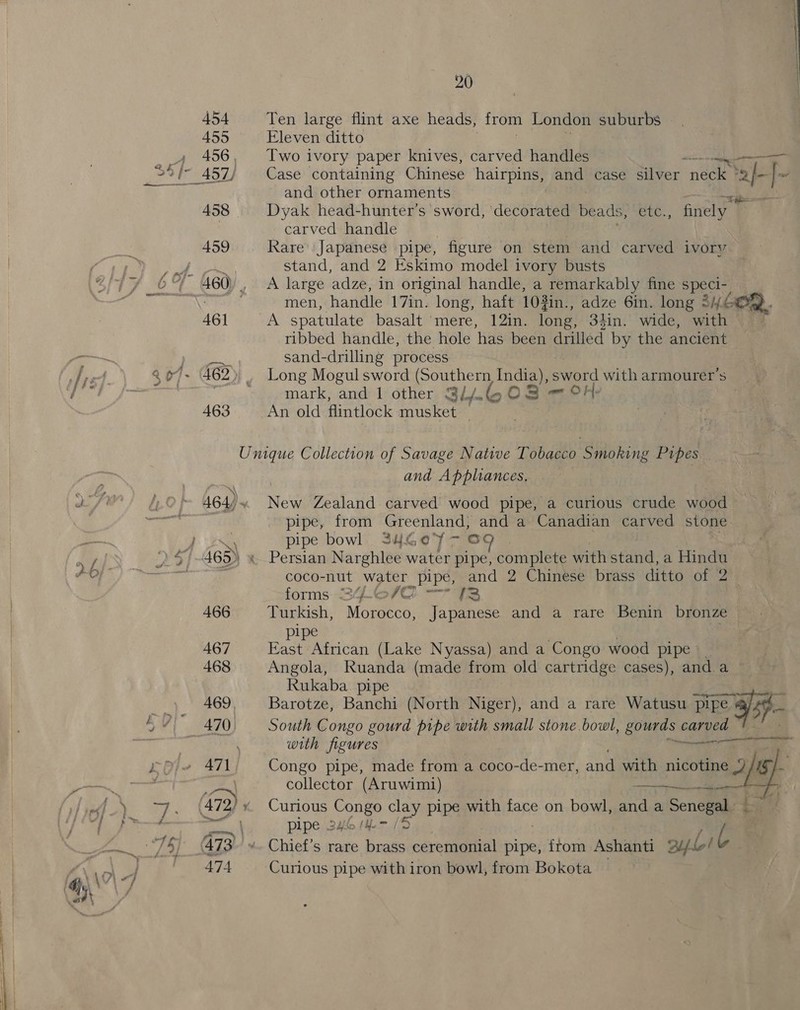 20
454 Ten large flint axe heads, from London suburbs
455 Eleven ditto
456 Two ivory paper knives, carved handles
457 Case containing Chinese hairpins, and case silver neck 2/-/-
and other ornaments
458 Dyak head-hunter's sword, decorated beads, etc., finely
carved handle
459 Rare Japanese pipe, figure on stem and carved ivory
stand, and 2 Eskimo model ivory busts
460 A large adze, in original handle, a remarkably fine speci-
men, handle 17in. long, haft 10¾in., adze 6in. long 34602
461 A spatulate basalt mere, 12in. long, 3¾in. wide, with
ribbed handle, the hole has been drilled by the ancient
sand-drilling process
462 Long Mogul sword (Southern India), sword with armourer's
mark, and 1 other 34603-04
463 An old flintlock musket
Unique Collection of Savage Native Tobacco Smoking Pipes
and Appliances.
464 New Zealand carved wood pipe, a curious crude wood
pipe, from Greenland, and a Canadian carved stone
pipe bowl 34607-09
465 Persian Narghlee water pipe, complete with stand, a Hindu
coco-nut water pipe, and 2 Chinese brass ditto of 2
forms 34610-13
466 Turkish, Morocco, Japanese and a rare Benin bronze
pipe
467 East African (Lake Nyassa) and a Congo wood pipe
468 Angola, Ruanda (made from old cartridge cases), and a
Rukaba pipe
469 Barotze, Banchi (North Niger), and a rare Watusu pipe
470 South Congo gourd pipe with small stone bowl, gourds carved
with figures
471 Congo pipe, made from a coco-de-mer, and with nicotine
collector (Aruwimi)
472 Curious Congo clay pipe with face on bowl, and a Senegal
pipe 34614-15
473 Chief's rare brass ceremonial pipe, from Ashanti
474 Curious pipe with iron bowl, from Bokota